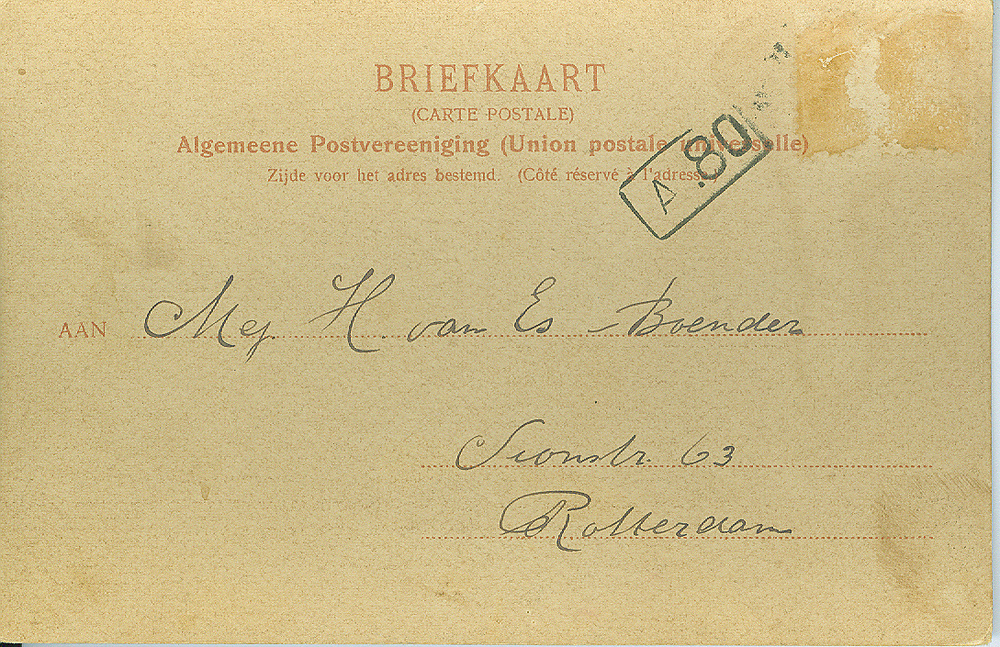 BRIEFKAART
(CARTE POSTALE)
Algemeene Postvereeniging (Union postale universelle)
Zijde voor het adres bestemd. (Côté réservé à l'adresse.)
A.80
AAN Mej. H. van Es - Boender
Sionstr. 63
Rotterdam